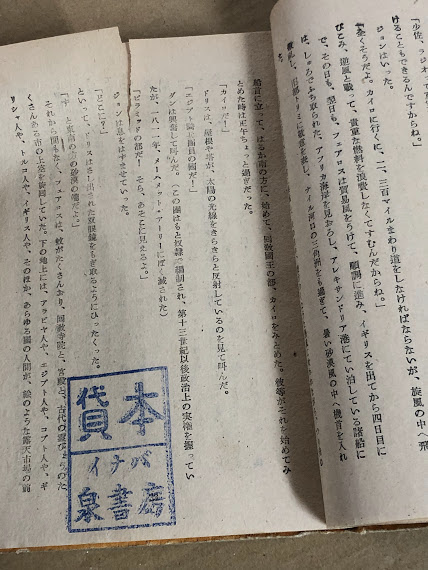 「少佐、ラジオ
けることもできるんですからね。」
ジョンはいった。
「全くそうだよ。カイロに行くに、二、三百マイルまわり道をしなければならないが、旋風の中へ飛
びこみ、逆風と戦って、貴重な燃料を浪費しなくてすむんだからね。」
で、その日も、翌日も、フェアロスは貿易風をうけて、順調に進み、イギリスを出てから四日目に
は、しゅろでふち取られた、アフリカ海岸を見おろし、アレキサンドリア港にてい泊している諸船に
敬礼し、旧都
ナイル河口の三角洲をも過ぎて、暑い砂漠風の中へ機首を入れ
船首に立って、はるか南の方に、始めて、回教国王の都、カイロをみとめた。彼等がそれを始めてみ
とめた時は正午ちょっと過ぎだった。
「カイロだ!」
ドリスは、屋根や塔が、太陽の光線をきらきらと反射しているのを見て叫んだ。
「エジプト騎士団員の国だ!」
ダンは興奮して叫んだ。(この団はもと奴隷で編制され、第十三世紀以後政治上の実権を握ってい
たが、一八一一年、メヘメット・アーリーにぼく滅された)
「ピラミッドの都だ! そら、あそこに見えるぞ。」
ジョンは息をはずませていった。
「どこに?」
といって、ドリスはさし出された双眼鏡をもぎ取るようにひったくった。
の方の砂漠の端だよ。」
それから間もなく、フェアロスは、蚊がたくさんおり、回教寺院と、宮殿と、古代の
くさんある市の上空を旋回していた。下の地上には、アラビヤ人や、エジプト人や、コプト人や、ギ
リシャ人や、トルコ人や、イギリス人や、そのほか、あらゆる国の人間が、絵のような露天市場の前
貸本
イナバ
泉書店